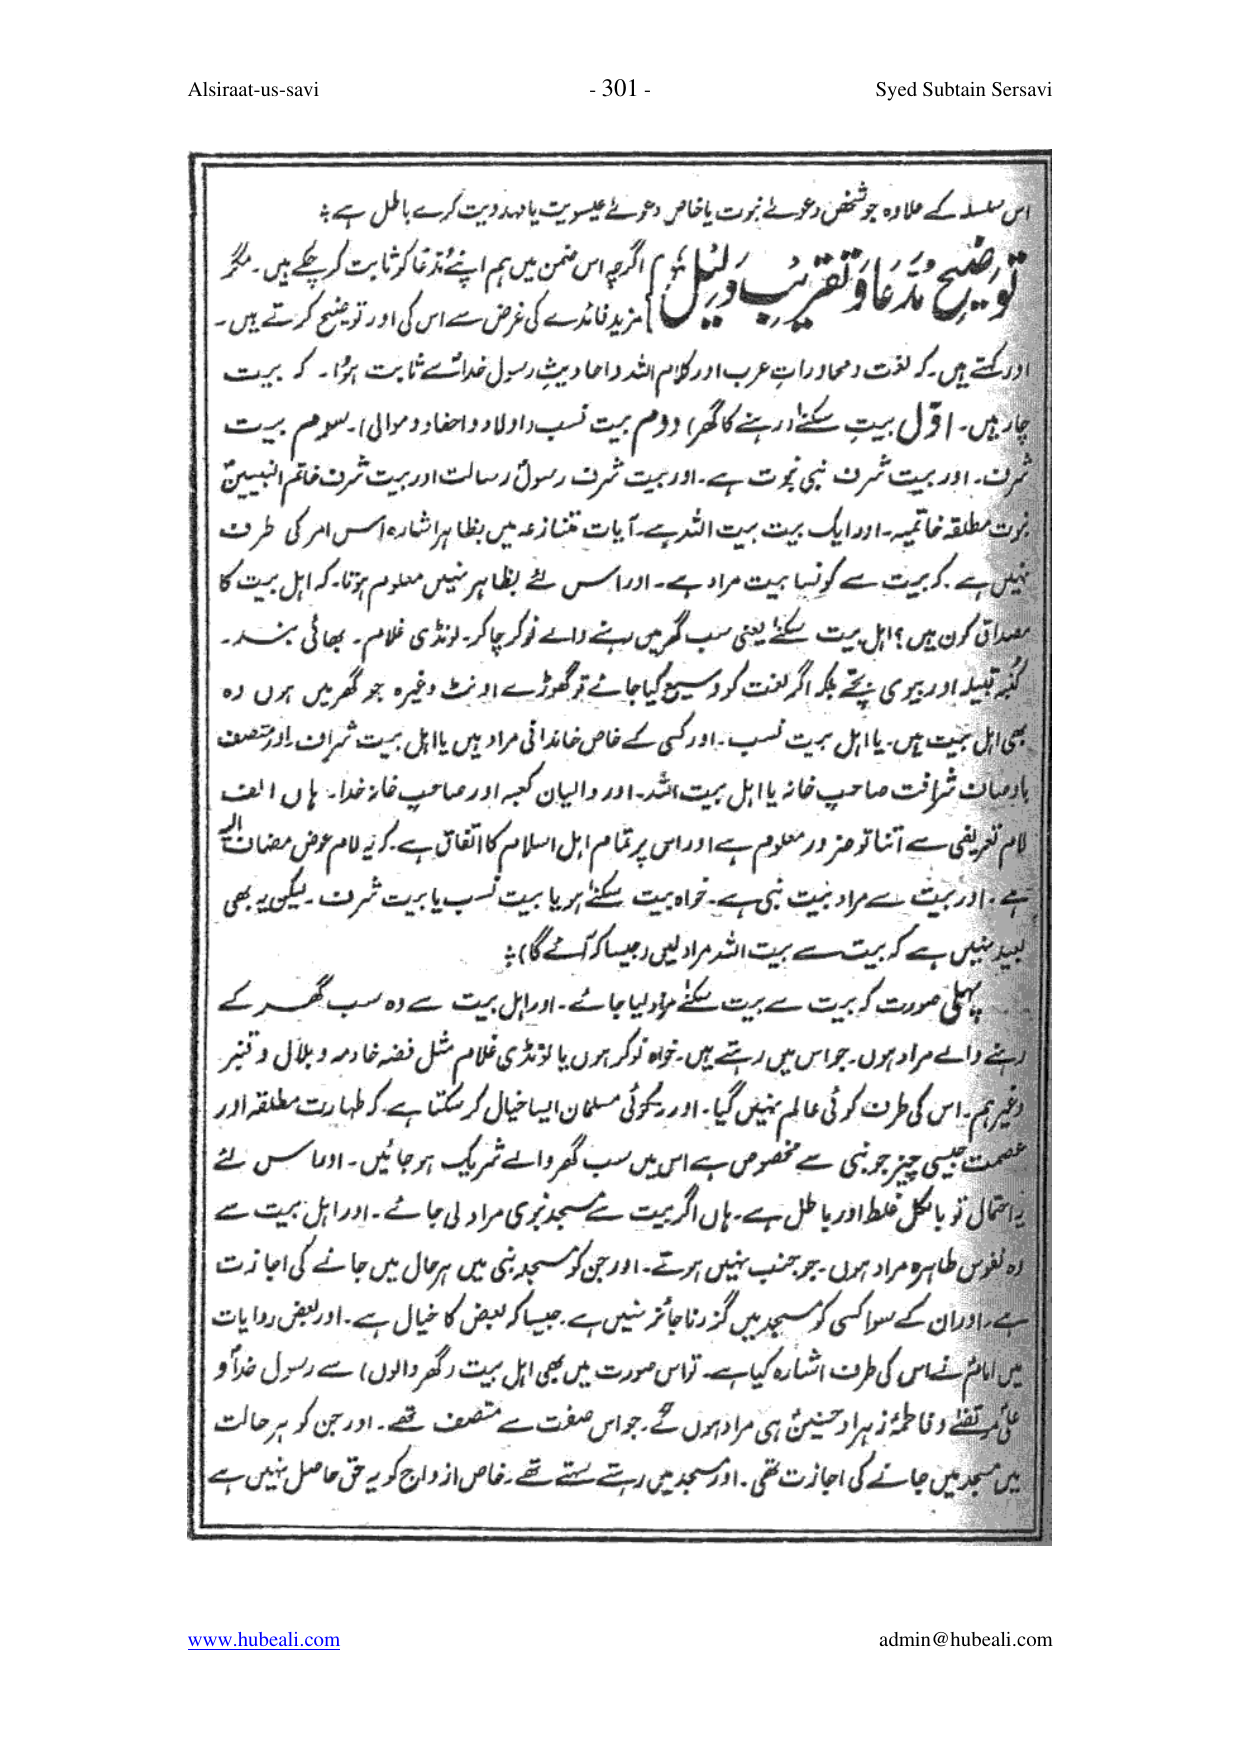 Alsiraat-us-savi - 301 - Syed Subtain Sersavi
اس سلسلہ کے علاوہ جو شخص دعوےٰ نبوت یا خاص دعوےٰ عیسویت یا مہدویت کرے باطل ہے؛
توضیح مدعا و تقریب دلیل
اگرچہ اس ضمن میں ہم اپنے مُدّعا کو ثابت کر چکے ہیں۔ مگر
مزید فائدے کی غرض سے اس کی اور توضیح کرتے ہیں۔
اور کہتے ہیں۔ کہ لغت و محاورات عرب اور کلام اللہ و احادیث رسول خداؐ سے ثابت ہؤا۔ کہ بیت
چار ہیں۔ اوّل بیتِ سکنےٰ (رہنے کا گھر) دوم بیت نسب (اولاد و احفاد و موالی)۔ سوم بیت
شرف۔ اور بیت شرف نبی نبوت ہے۔ اور بیت شرف رسولؐ رسالت اور بیت شرف خاتم النبیینؐ
نبوت مطلقہ خاتمیہ۔ اور ایک بیت بیت اللہ ہے۔ آیات متنازعہ میں بظاہر اشارہ اس امر کی طرف
نہیں ہے۔ کہ بیت سے کونسا بیت مراد ہے۔ اور اس لئے بظاہر نہیں معلوم ہوتا۔ کہ اہل بیت کا
مصداق کون ہیں؟ اہل بیت سکنےٰ یعنی سب گھر میں بسنے والے نوکر چاکر۔ لونڈی غلام۔ بھائی بند۔
کنبہ قبیلہ اور بیوی بچّے بلکہ اگر لغت کو وسیع کیا جائے تو گھوڑے اونٹ وغیرہ جو گھر میں ہوں وہ
بھی اہل بیت ہیں۔ یا اہل بیت نسب۔ اور کسی کے خاص خاندانی مراد ہیں یا اہل بیت شرف۔ اور متصف
باوصاف شرافت صاحبِ خانہ یا اہل بیت اللہ۔ اور والیان کعبہ اور صاحبِ خانہ خدا۔ ہاں الف
لام تعریفی سے اتنا تو ضرور معلوم ہے اور اس پر تمام اہل اسلام کا اتفاق ہے۔ کہ یہ لام عوض مضاف الیہ
ہے۔ اور بیت سے مراد بیت نبی ہے۔ خواہ بیت سکنےٰ ہو یا بیت نسب یا بیت شرف۔ لیکن یہ بھی
بعید نہیں ہے کہ بیت سے بیت اللہ مراد لیں (جیسا کہ آئے گا)؛
پہلی صورت کہ بیت سے بیت سکنےٰ مراد لیا جائے۔ اور اہل بیت سے وہ سب گھر کے
رہنے والے مراد ہوں۔ جو اس میں رہتے ہیں۔ خواہ نوکر ہوں یا لونڈی غلام مثل فضہ خادمہ و بلال و قنبر
وغیرہم۔ اس کی طرف کوئی عالم نہیں گیا۔ اور نہ کوئی مسلمان ایسا خیال کر سکتا ہے۔ کہ طہارت مطلقہ اور
عصمت جیسی چیز جو نبی سے مخصوص ہے اس میں سب گھر والے شریک ہو جائیں۔ اور اس لئے
یہ احتمال تو بالکل غلط اور باطل ہے۔ ہاں اگر بیت سے مسجد نبوی مراد لی جائے۔ اور اہل بیت سے
وہ نفوس طاہرہ مراد ہوں۔ جو جنب نہیں ہوتے۔ اور جن کو مسجد نبی میں ہر حال میں جانے کی اجازت
ہے۔ اور ان کے سوا کسی کو مسجد میں گزرنا جائز نہیں ہے۔ جیسا کہ بعض کا خیال ہے۔ اور بعض روایات
میں امامؑ نے اس کی طرف اشارہ کیا ہے۔ تو اس صورت میں بھی اہل بیت (گھر والوں) سے رسول خداؐ و
علیؑ مرتضےٰ و فاطمہؑ زہرا و حسنینؑ ہی مراد ہوں گے۔ جو اس صفت سے متصف تھے۔ اور جن کو ہر حالت
میں مسجد میں جانے کی اجازت تھی۔ اور مسجد میں رہتے سہتے تھے۔ خاص ازواج کو یہ حق حاصل نہیں ہے
www.hubeali.com admin@hubeali.com